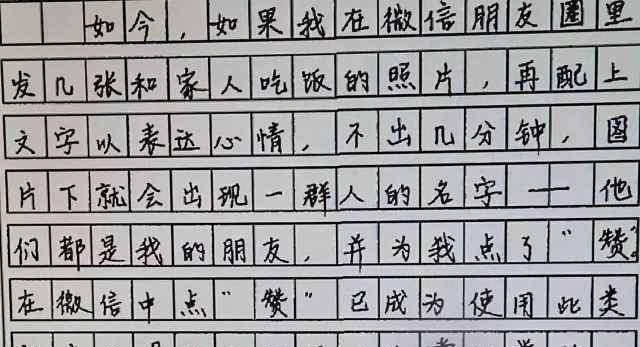 如今,如果我在微信朋友圈里
发几张和家人吃饭的照片,再配上
文字以表达心情,不出几分钟,图
片下就会出现一群人的名字——他
们都是我的朋友,并为我点了“赞”
在微信中点“赞”已成为使用此类